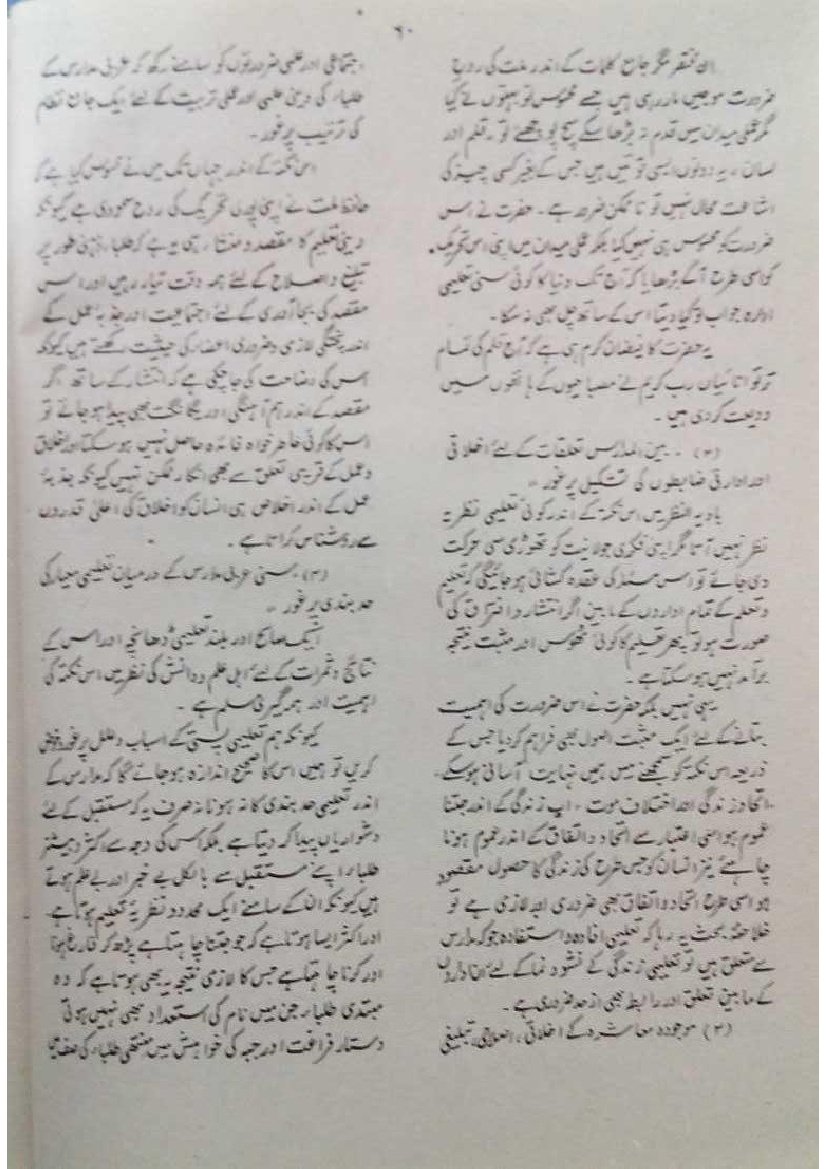 ۶۰
ان مختصر مگر جامع کلمات کے اندر ملت کی
ضرورت موجیں مار رہی ہیں جسے محسوس تو بہتوں نے کیا
مگر عملی میدان میں قدم نہ بڑھا سکے سچ پوچھئے تو ۔ قلم اور
لسان ، یہ دونوں ایسی قوتیں ہیں جس کے بغیر کسی چیز کی
اشاعت محال نہیں تو ناممکن ضرور ہے ۔ حضرت نے اس
ضرورت کو محسوس ہی نہیں کیا بلکہ عملی میدان میں اپنی اس تحریک
کو اسی طرح آگے بڑھایا کہ آج تک دنیا کا کوئی سنی تعلیمی
ادارہ جواب تو کیا دیتا اس کے ساتھ چل بھی نہ سکا ۔
یہ حضرت کا فیضان کرم ہی ہے کہ آج قلم کی تمام
تر توانائیاں رب کریم نے مصباحیوں کے ہاتھوں میں
ودیعت کر دی ہیں ۔
بین المدارس تعلقات کے لئے اخلاقی
اور ادارتی ضابطوں کی تشکیل پر غور ۔
بادی النظر میں اس نکتہ کے اندر کوئی تعلیمی نظریہ
نظر نہیں آتا مگر اپنی فکری جولانیت کو تھوڑی سی حرکت
دی جائے تو اس مسئلہ کی عقدہ کشائی ہو جائیگی کہ تعلیم
و تعلم کے تمام اداروں کے مابین اگر انتشار و افتراق کی
صورت ہو تو پھر تعلیم کا کوئی ٹھوس اور مثبت نتیجہ
برآمد نہیں ہو سکتا ہے ۔
یہی نہیں بلکہ حضرت نے اس ضرورت کی اہمیت
بتانے کے لئے ایک مثبت اصول بھی فراہم کر دیا جس کے
ذریعہ اس نکتہ کو سمجھنے میں ہمیں نہایت آسانی ہو سکے ۔
اتحاد زندگی اور اختلاف موت ، اب زندگی کے اندر جتنا
عموم ہو اسی اعتبار سے اتحاد و اتفاق کے اندر عموم ہونا
چاہئے نیز انسان کو جس طرح کی زندگی کا حصول مقصود
ہو اسی طرح اتحاد و اتفاق بھی ضروری اور لازمی ہے تو
خلاصۂ بحث یہ رہا کہ تعلیمی افادہ و استفادہ جو کہ مدارس
سے متعلق ہیں تو تعلیمی زندگی کے نشوونما کے لئے ان اداروں
کے مابین تعلق اور رابطہ بھی از حد ضروری ہے ۔
(۳) موجودہ معاشرہ کے اخلاقی ، اصلاحی ، تبلیغی
اجتماعی اور علمی ضرورتوں کو سامنے رکھ کر عربی مدارس کے
طلباء کی دینی علمی اور عملی تربیت کے لئے ایک جامع نظام
کی ترتیب پر غور ۔
اس نکتہ کے اندر جہاں تک میں نے محسوس کیا ہے کہ
حافظ ملت نے اپنی پوری تحریک کی روح سمودی ہے کیونکہ
دینی تعلیم کا مقصد و منشا رہی یہ ہے کہ طلباء ذہنی طور پر
تبلیغ و اصلاح کے لئے ہمہ وقت تیار رہیں اور اس
مقصد کی بجا آوری کے لئے اجتماعیت اور جذبۂ عمل کے
اندر پختگی لازمی و ضروری اعضاء کی حیثیت رکھتے ہیں کیونکہ
اس کی وضاحت کی جا چکی ہے کہ انتشار کے ساتھ اگر
مقصد کے اندر ہم آہنگی اور یگانگت بھی پیدا ہو جائے تو
اس کا کوئی خاطر خواہ فائدہ حاصل نہیں ہو سکتا اور اخلاق
و عمل کے قریبی تعلق سے بھی انکار ممکن نہیں کیونکہ جذبۂ
عمل کے اندر اخلاص ہی انسان کو اخلاق کی اعلیٰ قدروں
سے روشناس کراتا ہے ۔
سنی عربی مدارس کے درمیان تعلیمی معیار کی
حد بندی پر غور ۔
ایک صالح اور بلند تعلیمی ڈھانچہ اور اس کے
نتائج و ثمرات کے لئے اہل علم و دانش کی نظر میں اس نکتہ کی
اہمیت اور ہمہ گیری مسلم ہے ۔
کیونکہ ہم تعلیمی پستی کے اسباب و علل پر غور و خوض
کریں تو ہمیں اس کا صحیح اندازہ ہو جائے گا کہ مدارس کے
اندر تعلیمی حد بندی کا نہ ہونا نہ صرف یہ کہ مستقبل کے لئے
دشواریاں پیدا کر دیتا ہے بلکہ اس کی وجہ سے اکثر و بیشتر
طلباء اپنے مستقبل سے بالکل بے خبر اور بے علم ہوتے
ہیں کیونکہ ان کے سامنے ایک محدود نظریۂ تعلیم ہوتا ہے ۔
اور اکثر ایسا ہوتا ہے کہ جو جتنا چاہتا ہے پڑھ کر فارغ ہونا
اور کرنا چاہتا ہے جس کا لازمی نتیجہ یہ بھی ہوتا ہے کہ وہ
مبتدی طلباء جن میں نام کی استعداد بھی نہیں ہوتی
دستار فراغت اور جبہ کی خواہش میں منتہی طلباء کی صف میں